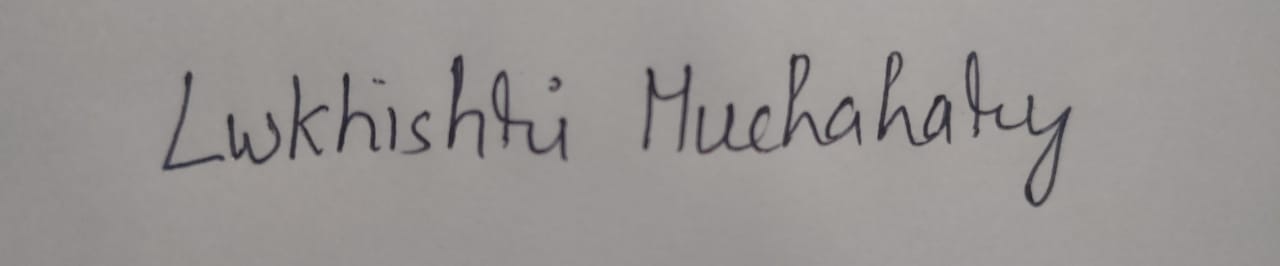 Lwkhishtri Muchahatry